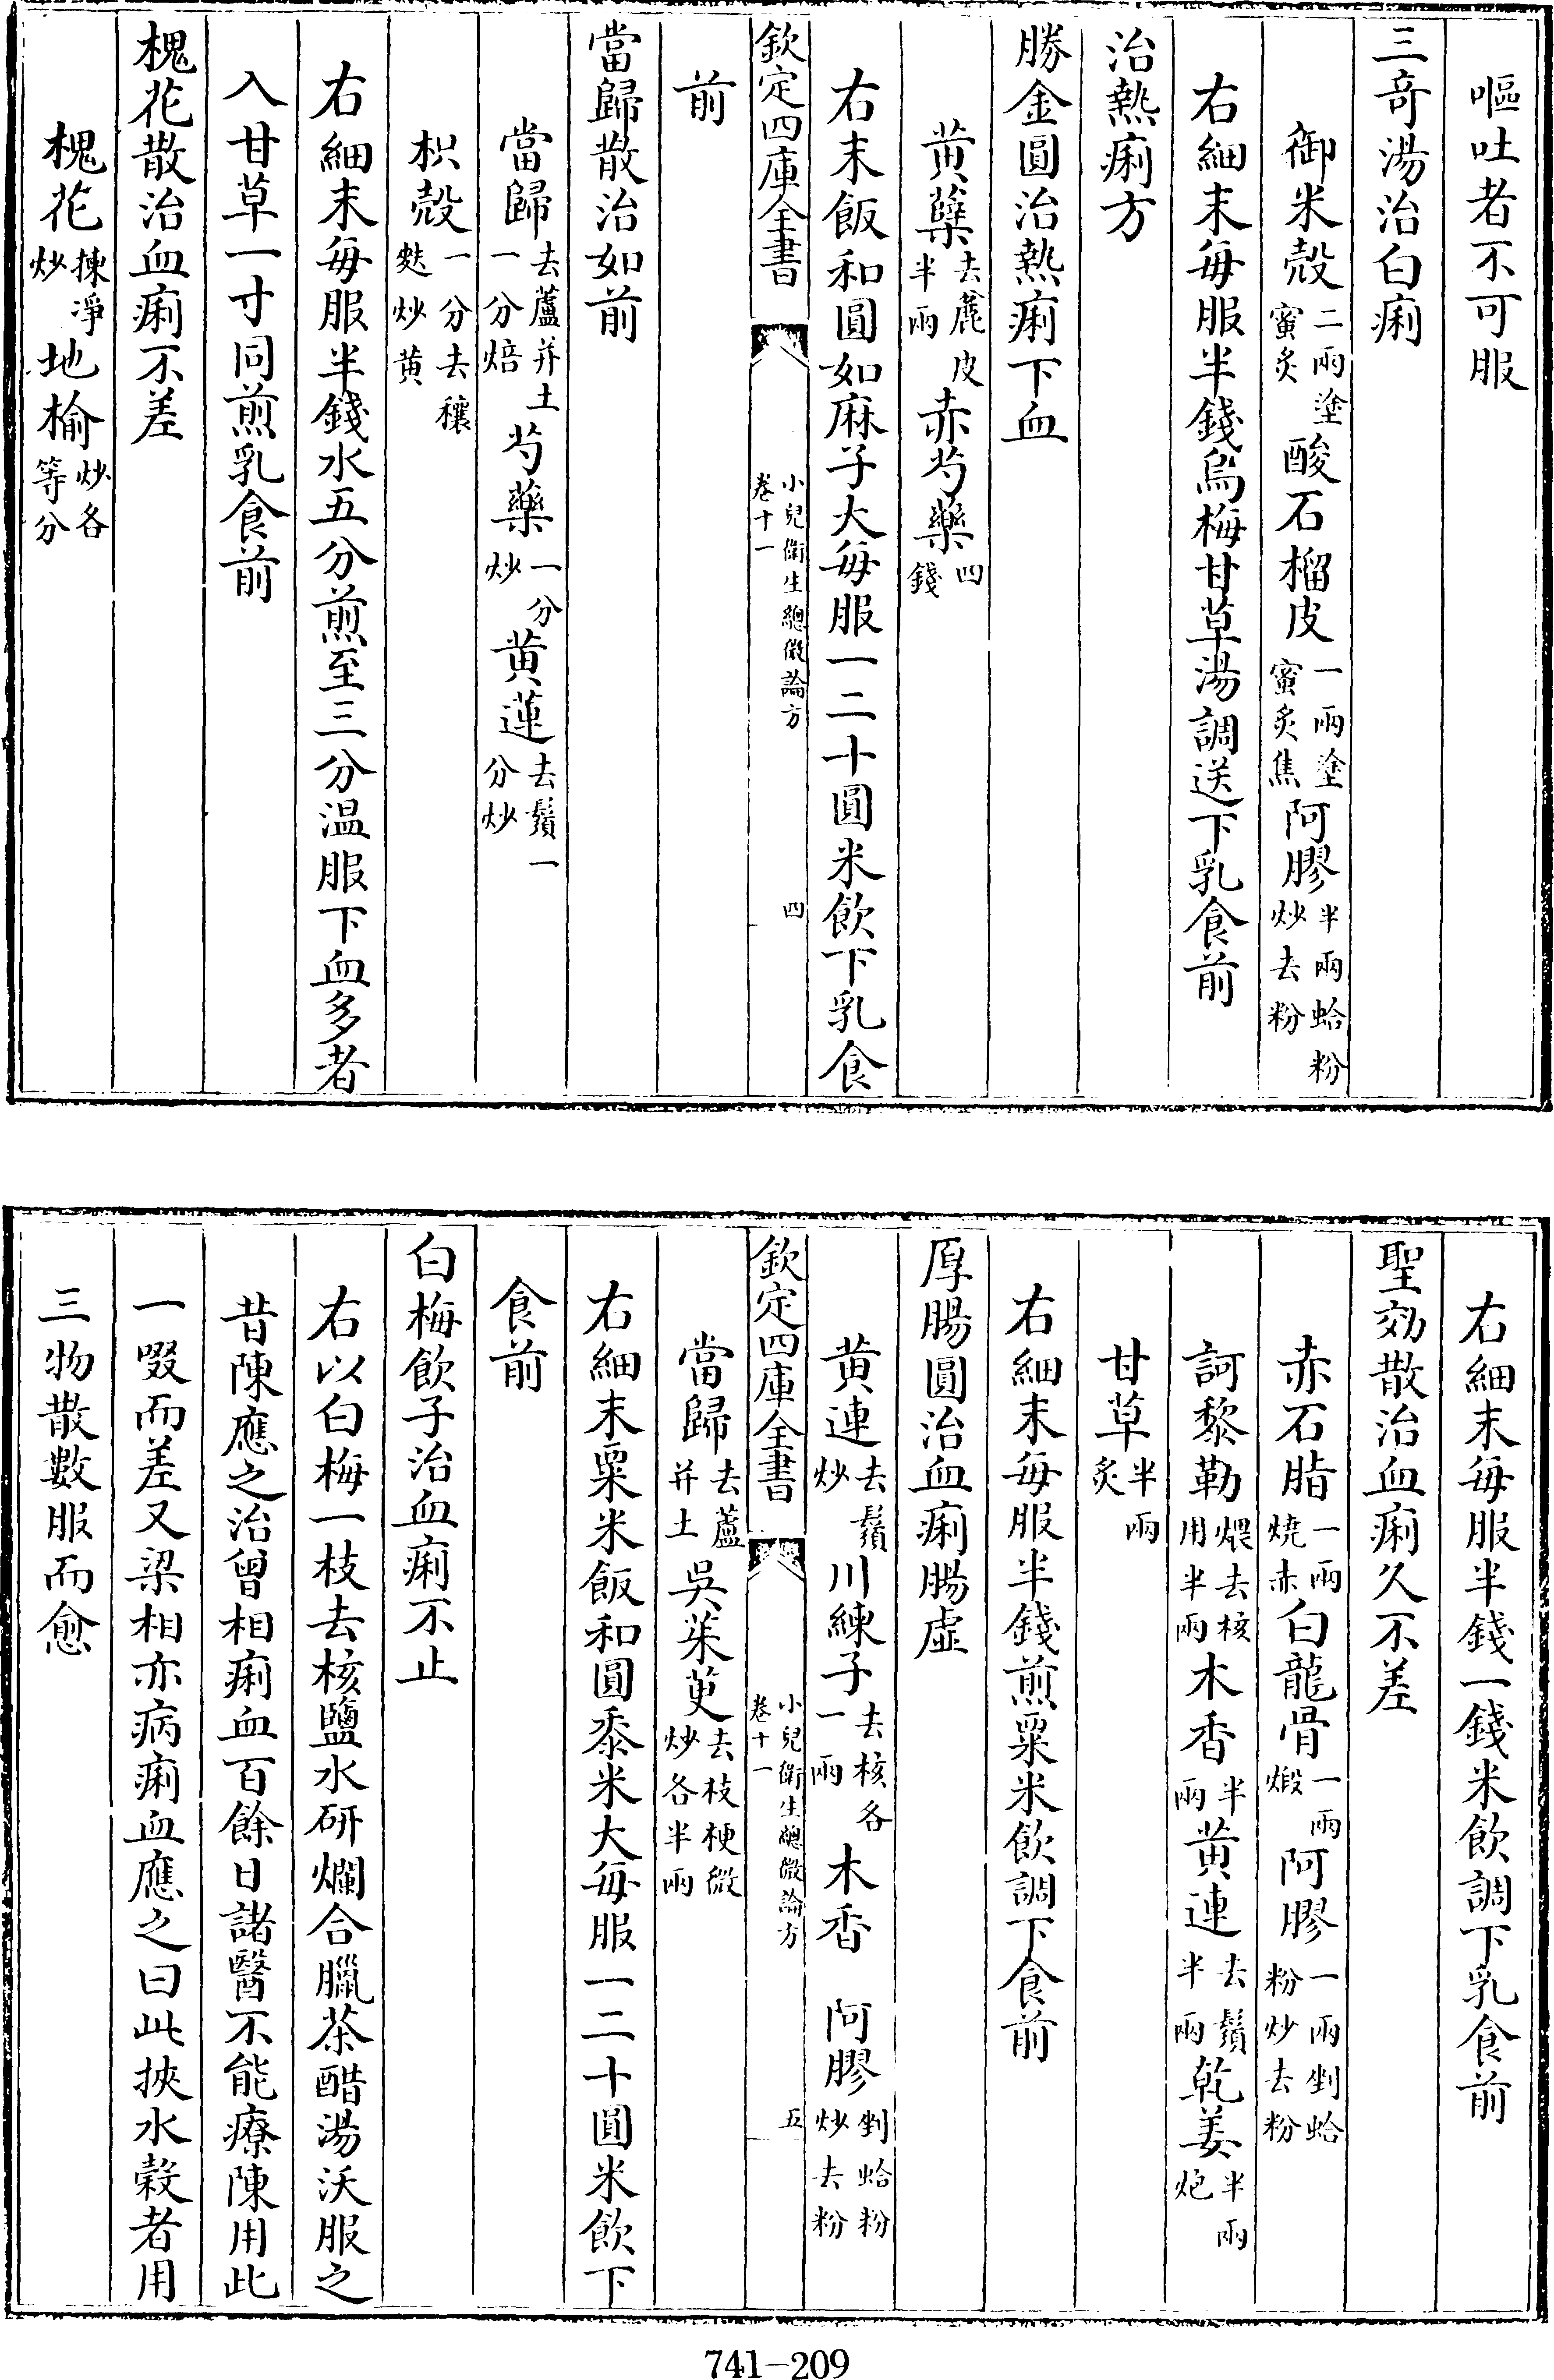 嘔吐者不可服
三竒湯治白痢
御米殻二兩塗蜜炙酸石榴皮一兩塗蜜炙焦阿膠半兩蛤粉炒去粉
右細末每服半錢烏梅甘草湯調送下乳食前
治熱痢方
勝金圓治熱痢下血
黄蘖去麄皮半兩赤芍藥四錢
右末飯和圓如麻子大每服一二十圓米飲下乳食
欽定四庫全書 小兒衛生總微論方卷十一 四
前
當歸散治如前
當歸去蘆并土一分焙芍藥一分炒黄蓮去鬚一分炒
枳殻一分去穰麩炒黄
右細末每服半錢水五分煎至三分温服下血多者
入甘草一寸同煎乳食前
槐花散治血痢不差
槐花揀淨炒地榆炒各等分
右細末每服半錢一錢米飲調下乳食前
聖効散治血痢久不差
赤石脂一兩燒赤白龍骨一兩煅阿膠一兩剉蛤粉炒去粉
訶黎勒煨去核用半兩木香半兩黄連去鬚半兩乾姜半兩炮
甘草半兩炙
右細末每服半錢煎粟米飲調下食前
厚腸圓治血痢腸虛
黄連去鬚炒川練子去核各一兩木香 阿膠剉蛤粉炒去粉
欽定四庫全書 小兒衛生總微論方卷十一 五
當歸去蘆并土吳茱萸去枝梗微炒各半兩
右細末粟米飯和圓黍米大每服一二十圓米飲下
食前
白梅飲子治血痢不止
右以白梅一枝去核鹽水研爛合臘茶醋湯沃服之
昔陳應之治曾相痢血百餘日諸醫不能療陳用此
一啜而差又梁相亦病痢血應之曰此挾水糓者用
三物散數服而愈
741-209